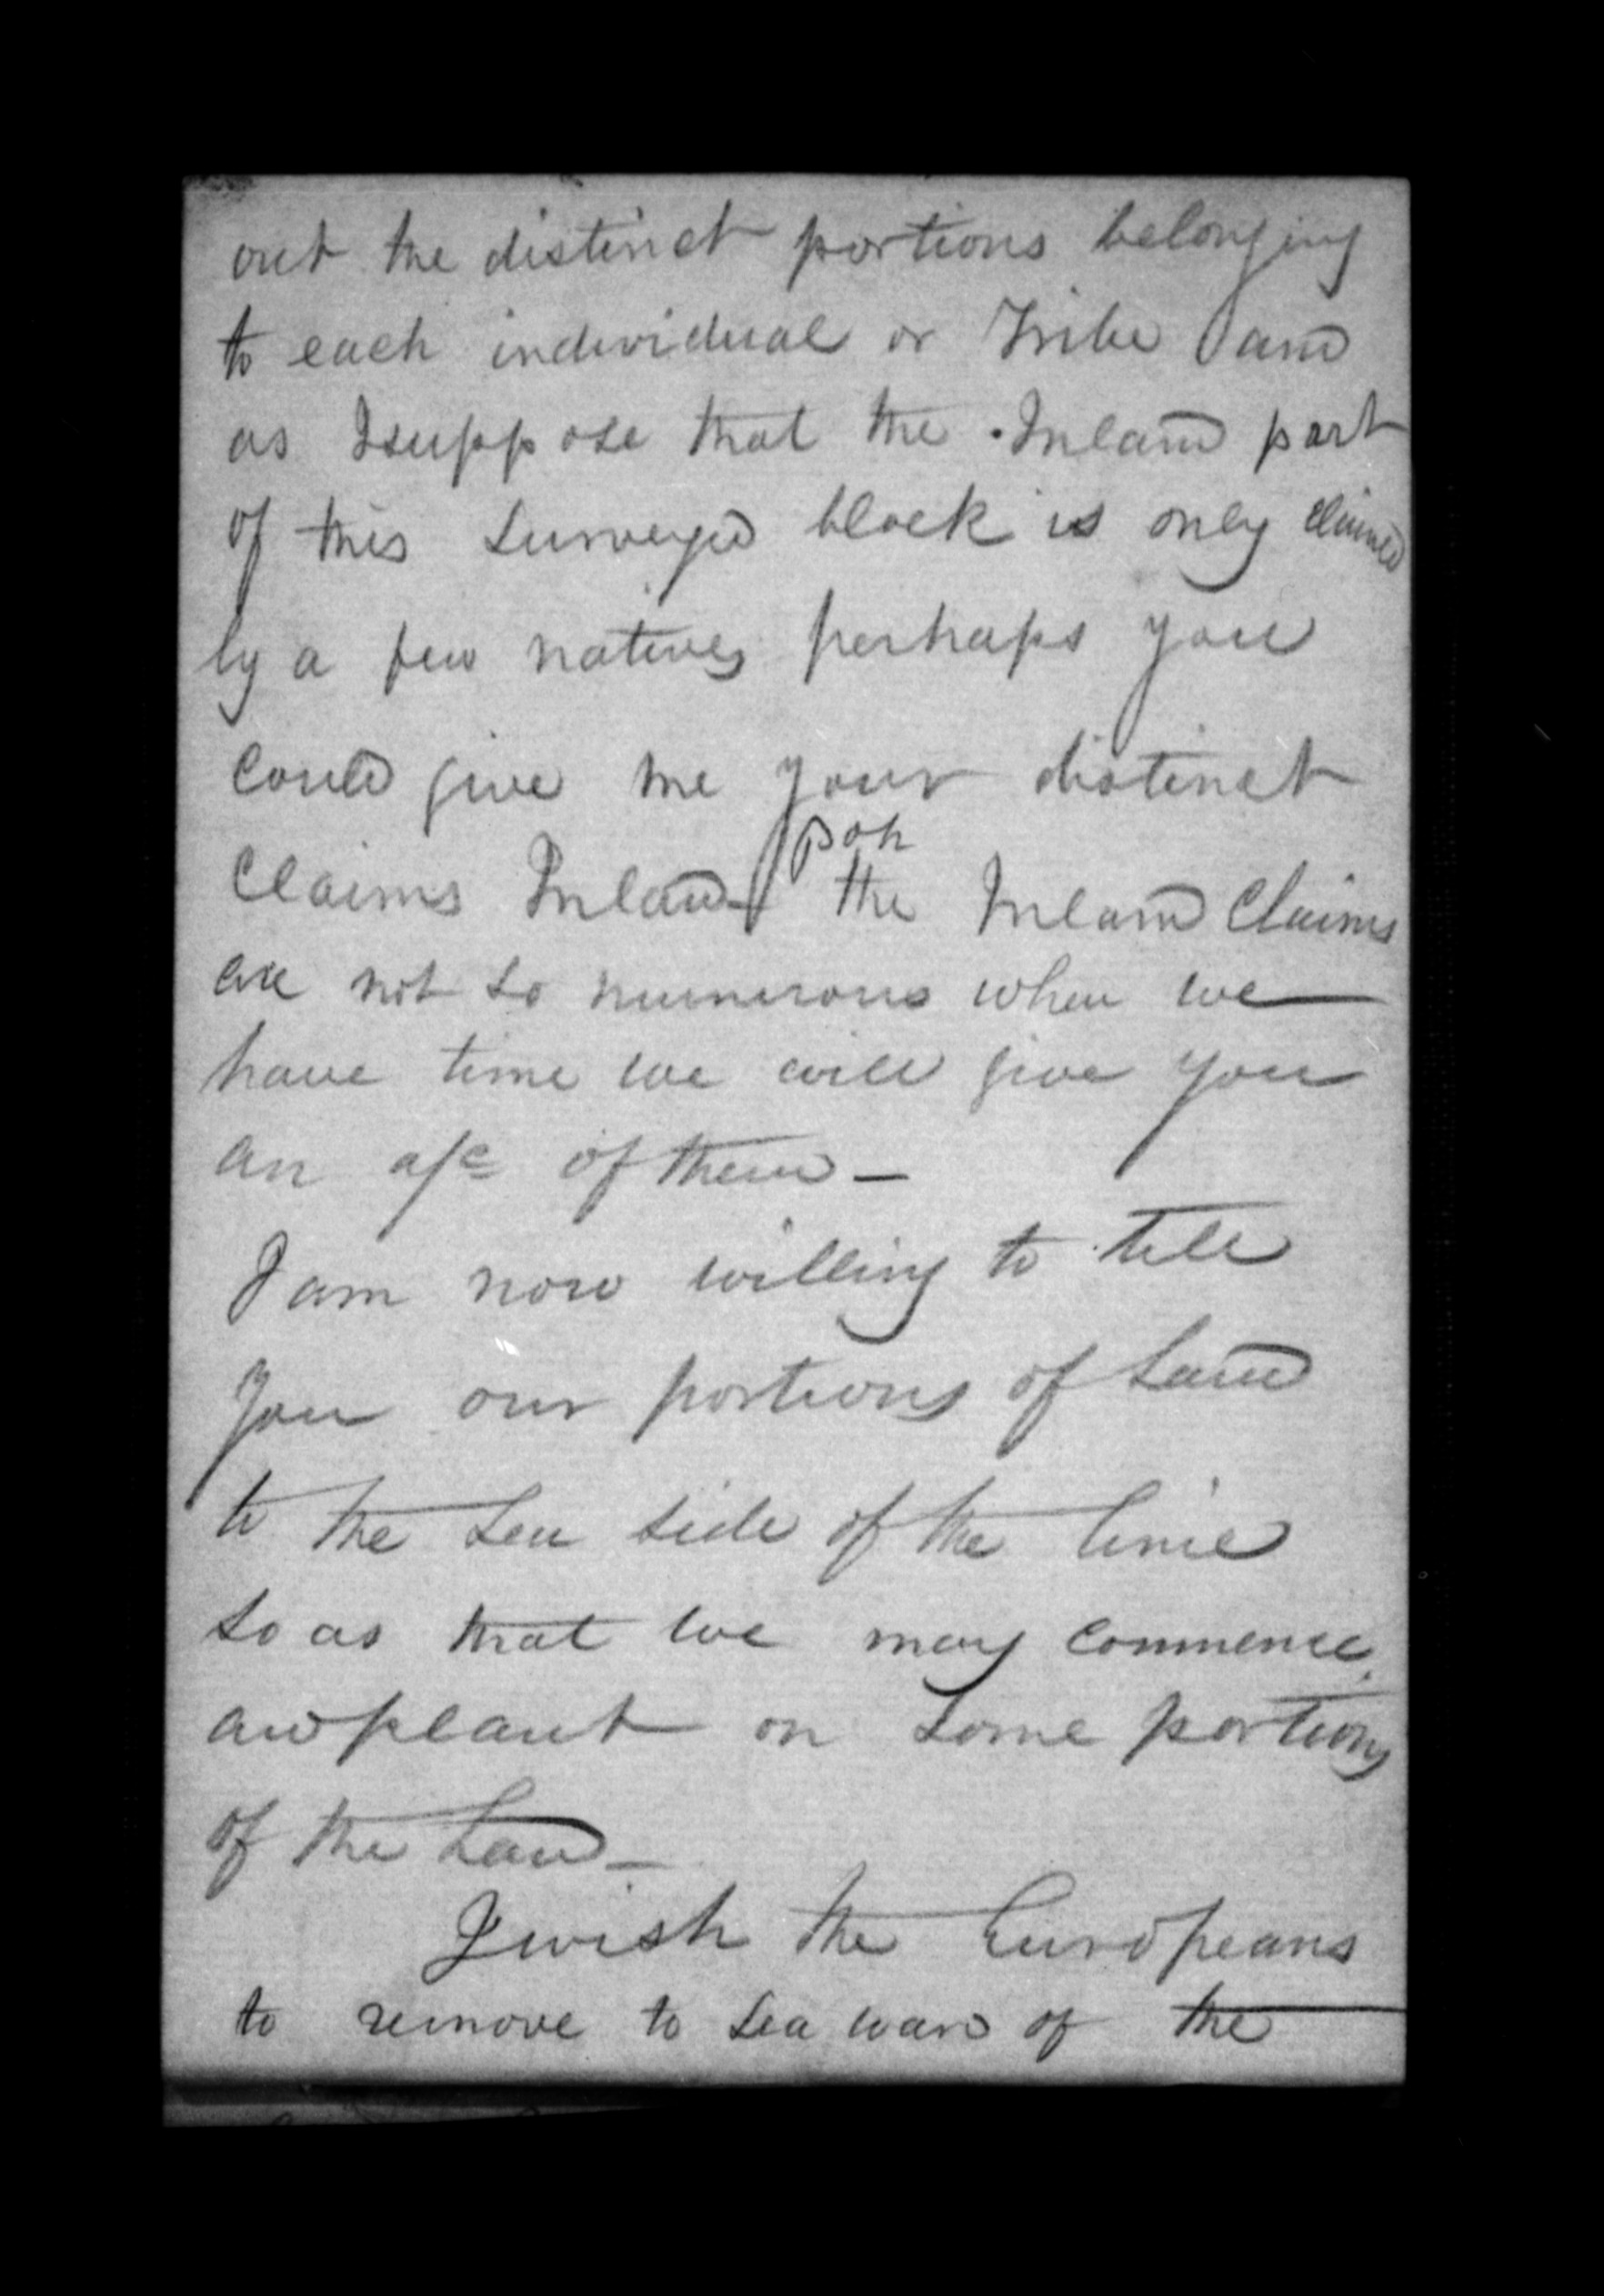 out the distinct portions belonging
to each individual or Tribe and
as I suppose that the Inland part
of this Surveyed block is only claimed
by a few natives perhaps you
could give me your distinct
Poh
Claims Inland the Inland Claims
are not so numerous when we
have time we will give you
an a/c of them —
I am now willing to tell
you our portions of Land
to the Sea side of the line
so as that we may commence
and plant on some portions
of the Land —
I wish the Europeans
to remove to sea ward of the